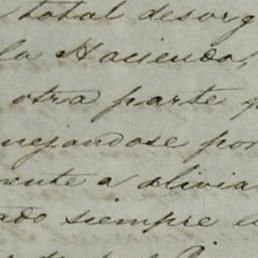 total desorg
la Hacienda,
otra parte
nejandose por
mente a alivia
ado siempre l